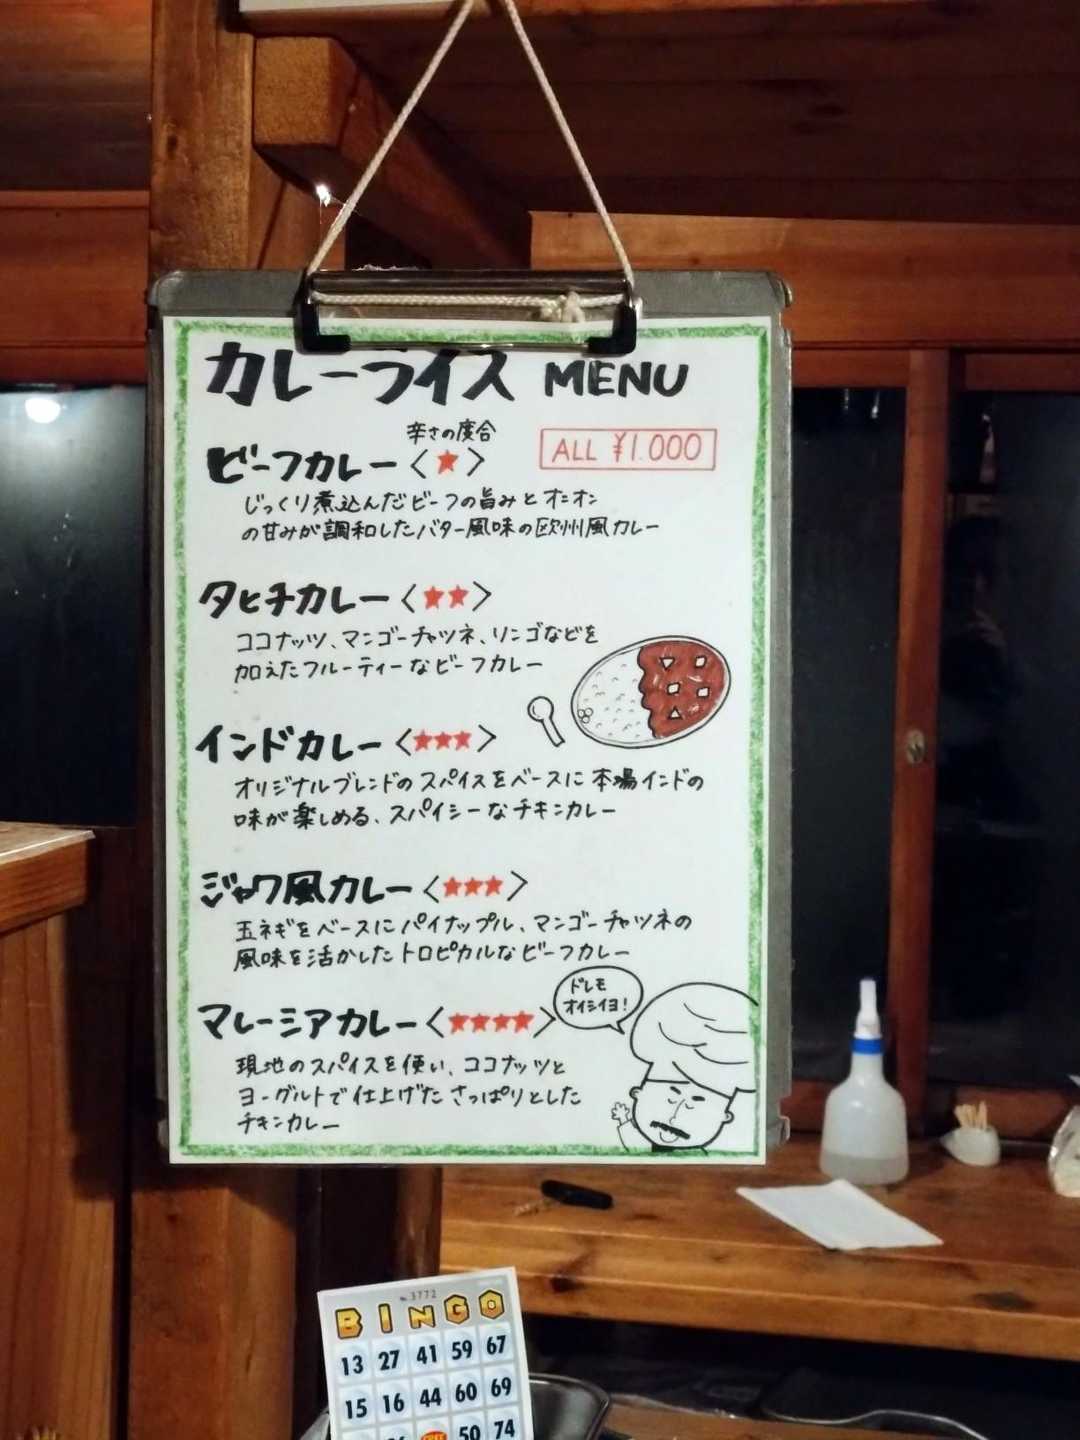 カレーライス MENU
辛さの度合
ビーフカレー〈★〉
ALL ¥1.000
じっくり煮込んだビーフの旨みとオニオン
の甘みが調和したバター風味の欧州風カレー
タヒチカレー〈★★〉
ココナッツ、マンゴーチャツネ、リンゴなどを
加えたフルーティーなビーフカレー
インドカレー〈★★★〉
オリジナルブレンドのスパイスをベースに本場インドの
味が楽しめる、スパイシーなチキンカレー
ジャワ風カレー〈★★★〉
玉ネギをベースにパイナップル、マンゴーチャツネの
風味を活かしたトロピカルなビーフカレー
ドレモ
オイシイヨ!
マレーシアカレー〈★★★★〉
現地のスパイスを使い、ココナッツと
ヨーグルトで仕上げたさっぱりとした
チキンカレー
No. 3772
BINGO
13 27 41 59 67
15 16 44 60 69
FREE 50 74